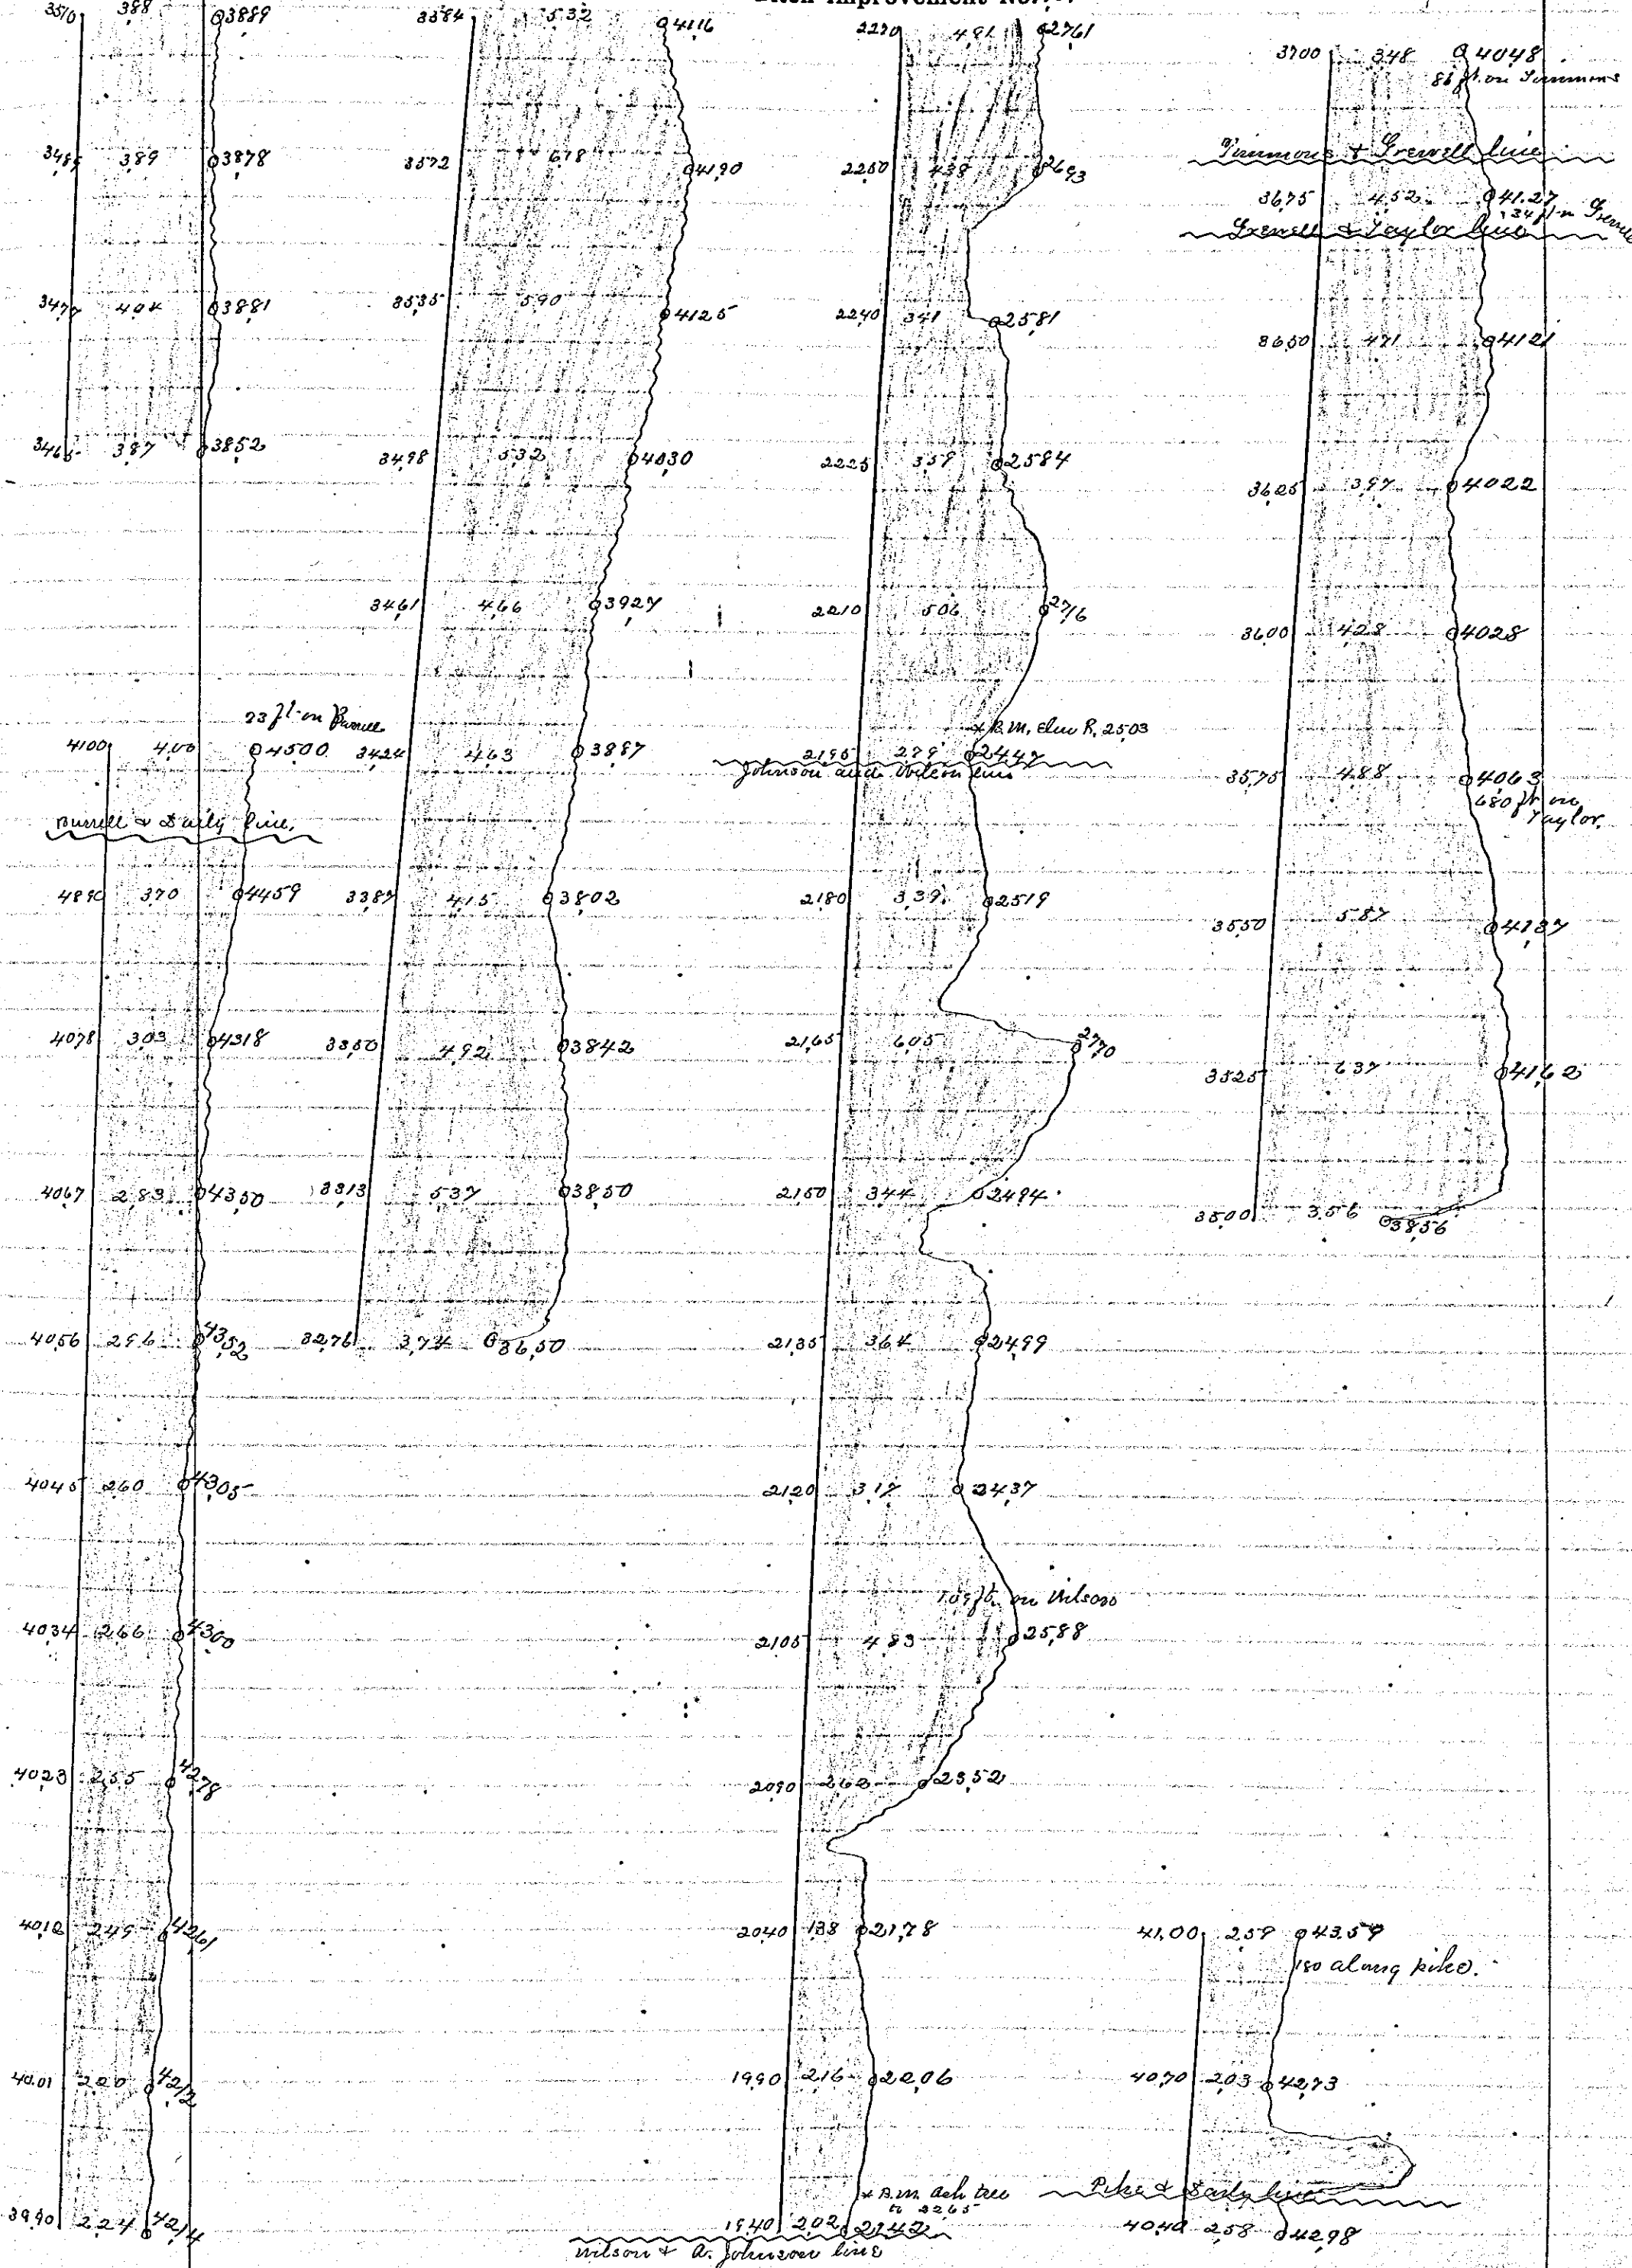 Ditch Improvement No.
3570 388 3889
3489 389 3878
3477 404 3881
3465 387 3852
23 ft on Burrell
4100 400 4500
Burrell & Daily line.
4890 370 4459
4078 303 4318
4067 283 4350
4056 296 4352
4045 260 4305
4034 266 4300
4023 255 4278
4012 249 4261
4001
3990 224 4214
3584 532 4116
3572 618 4190
3535 590 4125
3498 532 4030
3461 466 3927
3424 463 3887
3387 415 3802
3350 492 3842
3313 537 3850
3276 374 3650
2270 491 2761
2250 438 2693
2240 341 2581
2225 359 2584
2210 506 2716
B.M. Elev R. 2503
2195 2447
Johnson and Wilson line
2180 339 2519
2165 605 2770
2150 344 2494
2135 364 2499
2120 317 2437
105 ft. on Wilson
2105 483 2588
2090 262 2352
2040 138 2178
1990 216 2206
x B.M. Ash tree
2265
1940 202 2142
Wilson & A. Johnson line
3700 348 4048
86 ft. on Timmons
Timmons & Grewell line
3675 452 4127
34 ft on Grewell
Grewell & Taylor line
3650 471 4121
3625 397 4022
3600 428 4028
3575 488 4063
680 ft on
Taylor.
3550 587 4137
3525 637 4162
3500 356 3856
4100 259 4359
180 along pike.
4070 203 4273
Pike & Daily line
4040 258 4298